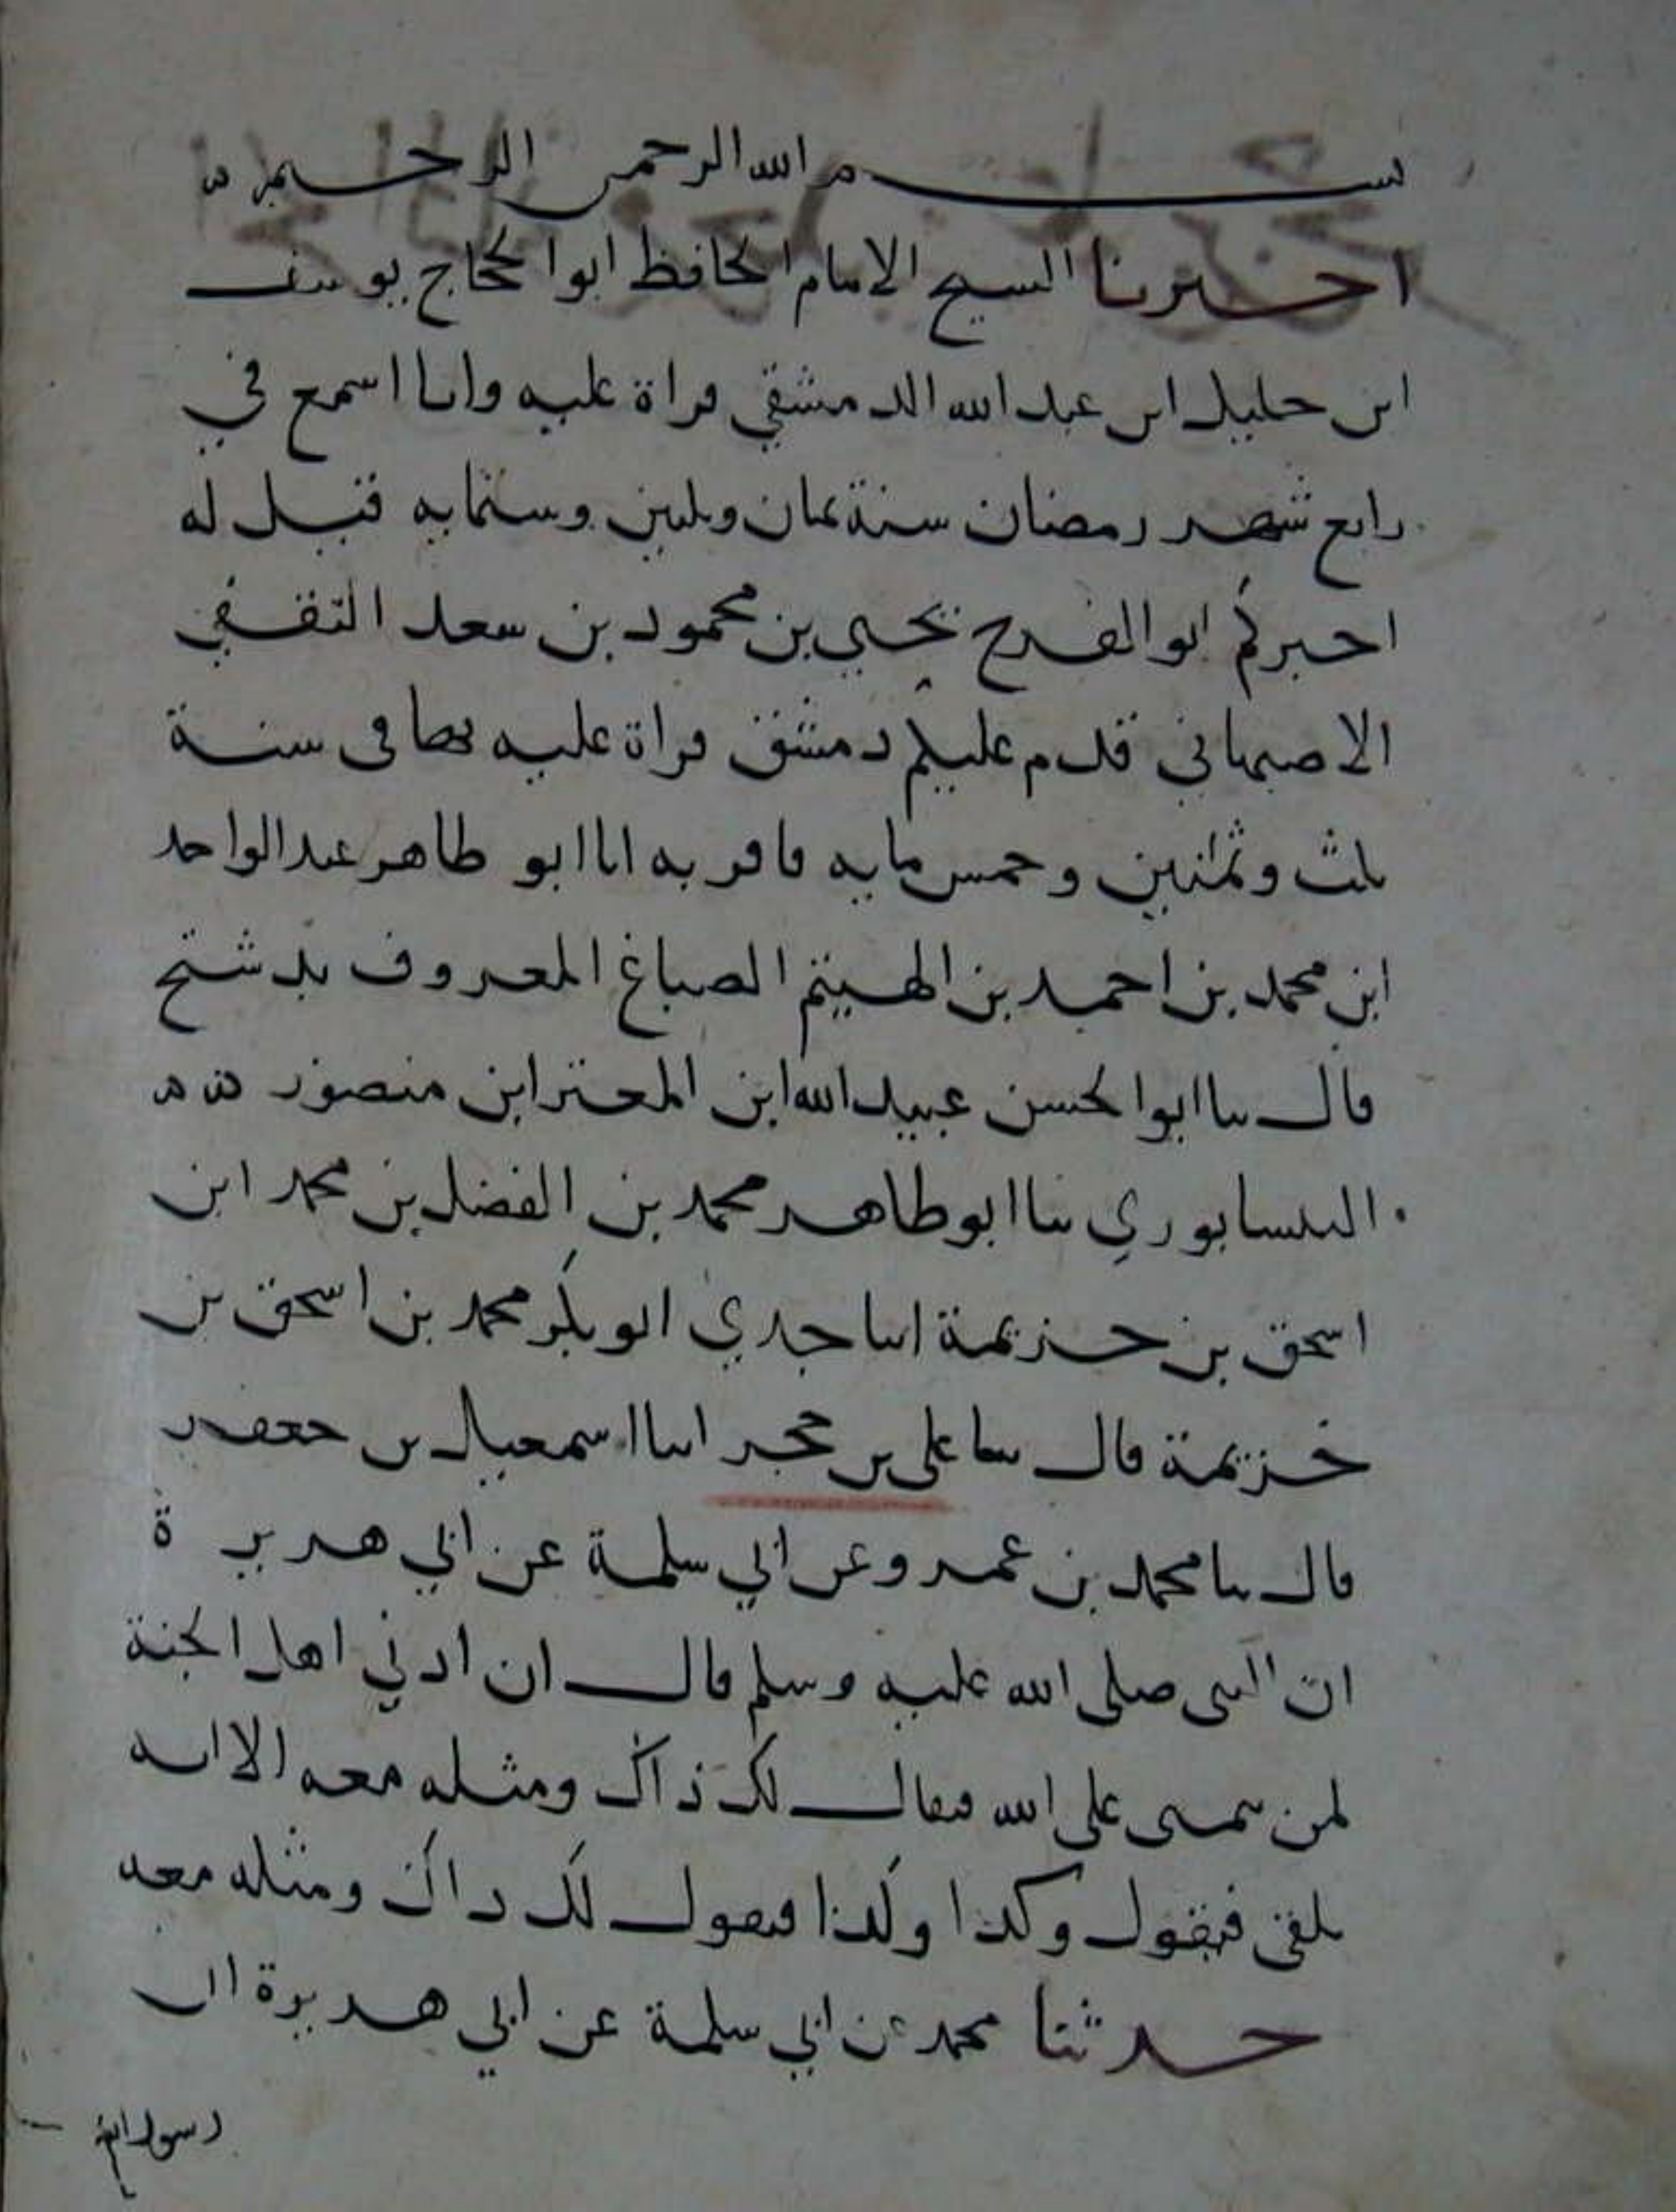 بسم الله الرحمن الرحيم
اخبرنا الشيخ الامام الحافظ ابوا الحجاج يوسف
ابن خليل ابن عبد الله الدمشقي قراة عليه وانا اسمع في
رابع شهر رمضان سنة ثمان وثلثين وستمايه قيل له
اخبركم ابو الفرج يحيى بن محمود بن سعد الثقفي
الاصبهاني قدم عليكم دمشق قراة عليه بها في سنة
ثلث وثمانين وخمس مايه فاقر به انا ابو طاهر عبد الواحد
ابن محمد بن احمد بن الهيثم الصباغ المعروف بدشتج
قال ثنا ابوا الحسن عبيد الله ابن المعتز ابن منصور
النيسابوري ثنا ابو طاهر محمد بن الفضل بن محمد ابن
اسحق بن خزيمة انبا جدي ابو بكر محمد بن اسحق بن
خزيمة قال ثنا علي بن حجر انبا اسمعيل بن جعفر
قال ثنا محمد بن عمرو عن ابي سلمة عن ابي هريرة
ان النبي صلى الله عليه وسلم قال ان ادني اهل الجنة
لمن يتمنى على الله فيقال لك ذاك ومثله معه الا انه
يلقى فيقول وكذا وكذا فيقول لك ذاك ومثله معه
حدثنا محمد عن ابي سلمة عن ابي هريرة ان
رسول الله